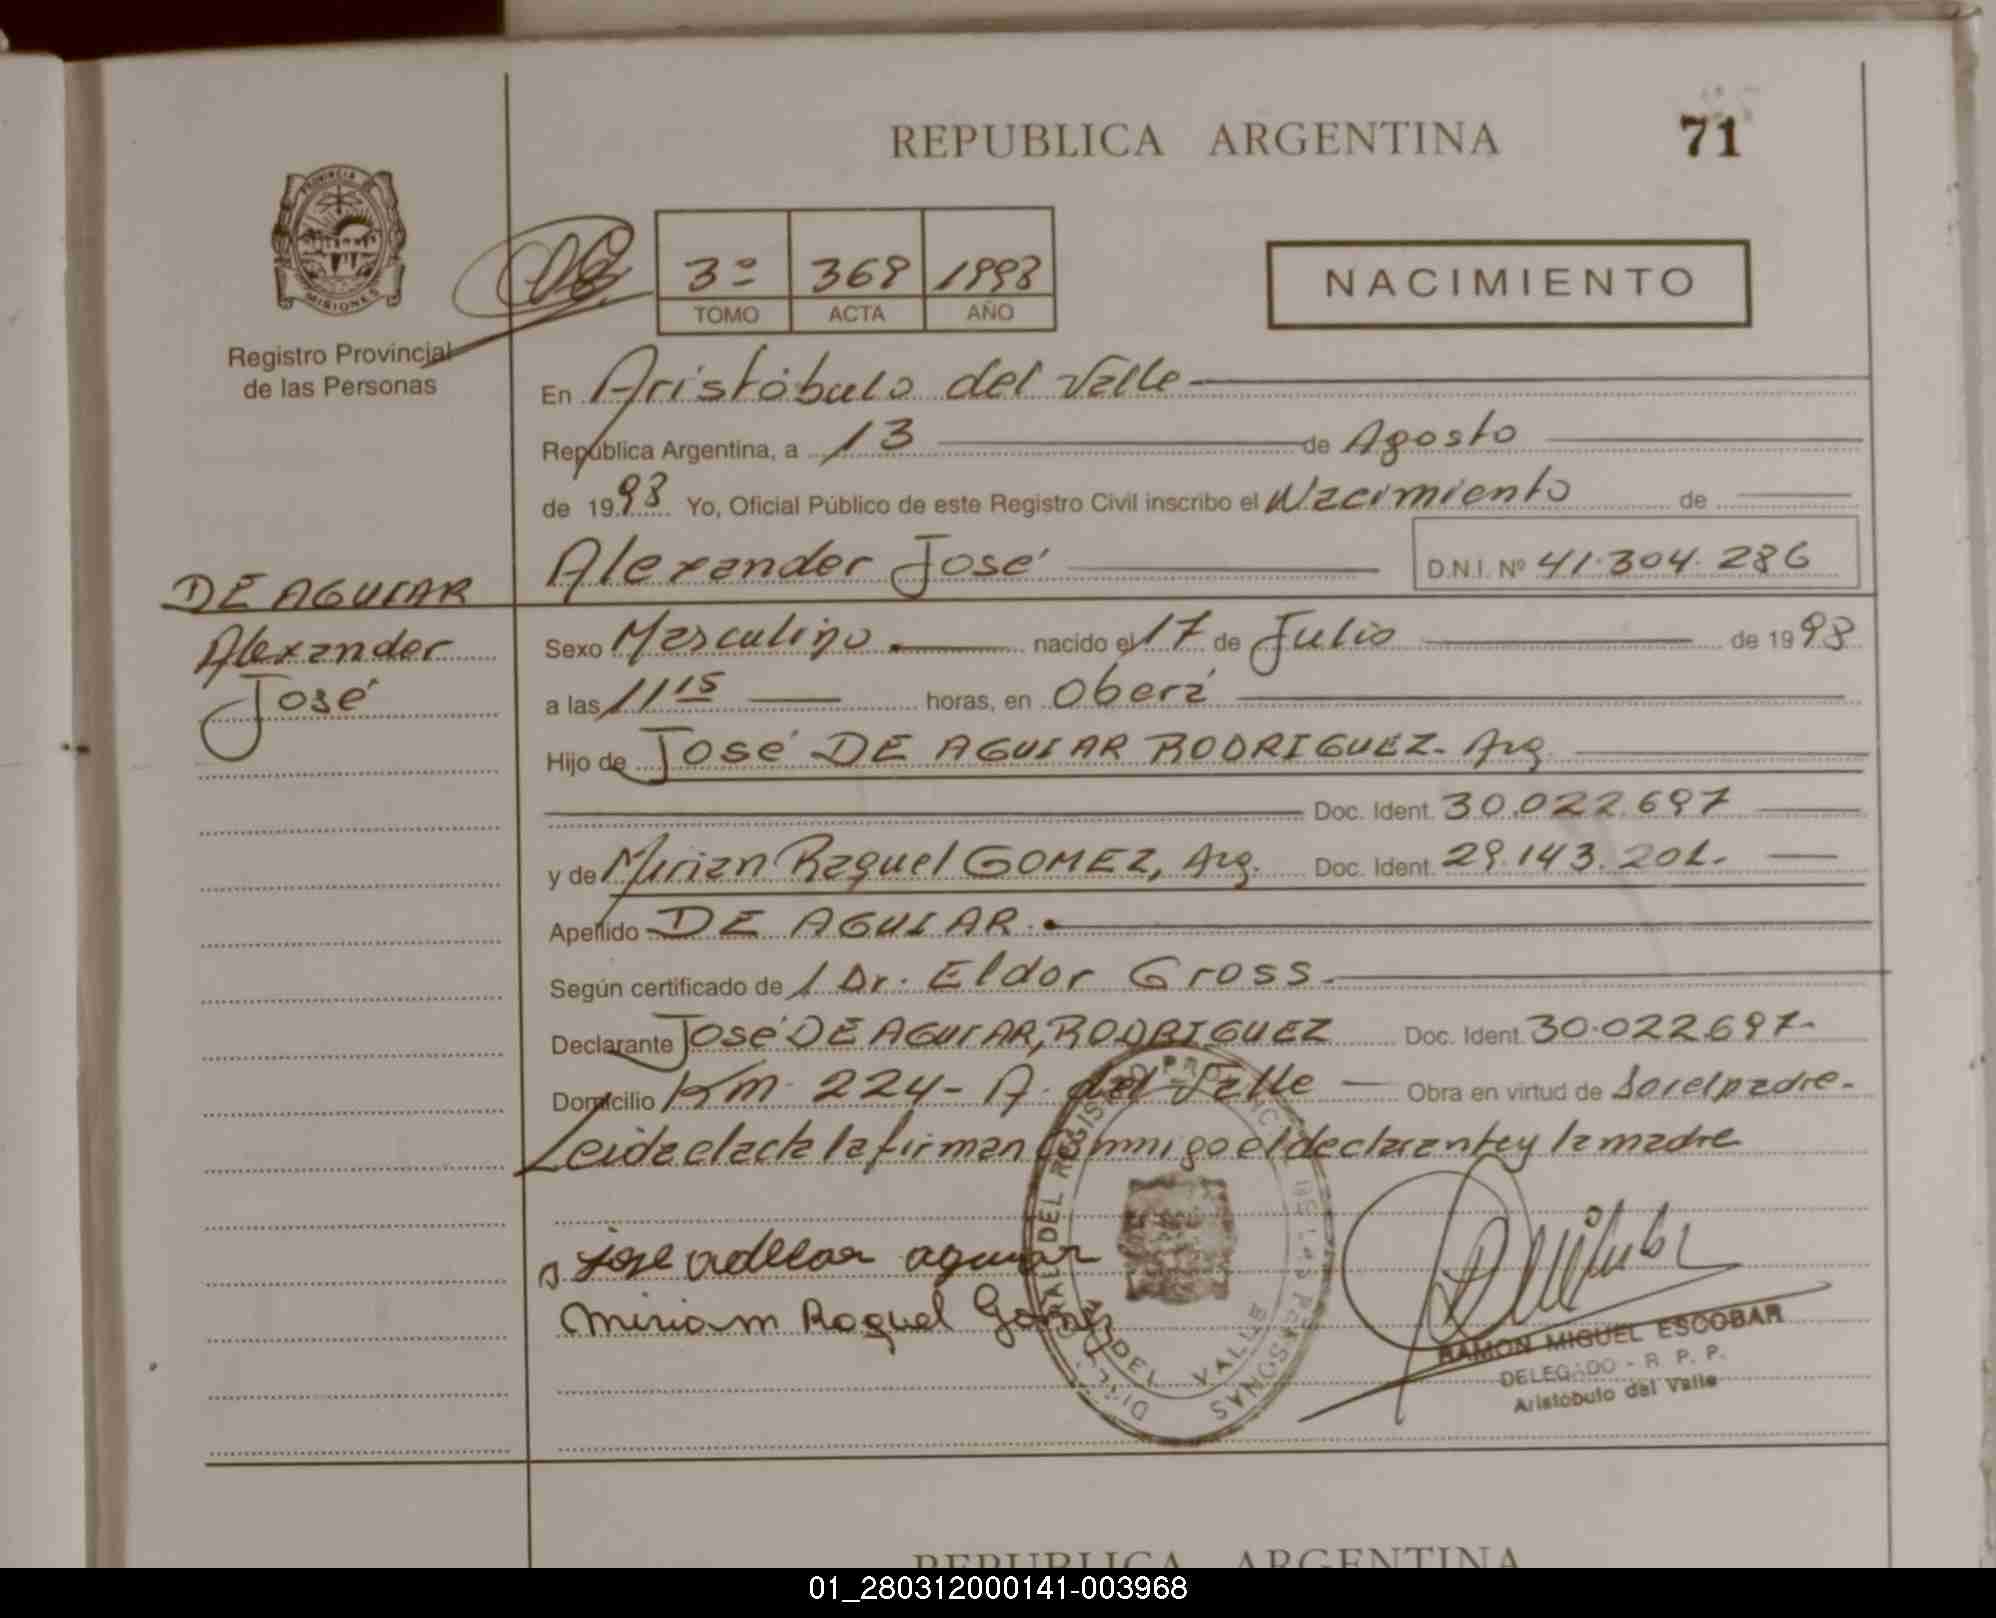 REPUBLICA ARGENTINA
71
PROVINCIA DE
MISIONES
Registro Provincial
de las Personas
3º 369 1998
TOMO ACTA AÑO
NACIMIENTO
En Aristóbulo del Valle
República Argentina, a 13 de Agosto
de 1998 Yo, Oficial Público de este Registro Civil inscribo el Nacimiento de
Alexander José D.N.I. Nº 41.304.286
DE AGUIAR
Alexander
José
Sexo Masculino nacido el 17 de Julio de 1998
a las 11 15 horas, en Oberá
Hijo de José DE AGUIAR RODRIGUEZ. Arg
Doc. Ident. 30.022.697
y de Mirian Raquel GOMEZ, Arg. Doc. Ident. 29.143.201.
Apellido DE AGUIAR.
Según certificado de / Dr. Eldor Gross.
Declarante José DE AGUIAR, RODRIGUEZ Doc. Ident. 30.022.697.
Domicilio Km. 224 - A. del Valle Obra en virtud de Ser el padre.
Leida el acta la firman conmigo el declarante y la madre
jose aguiar
Miriam Raquel Gomez
RAL DEL REGISTRO PROVINCIAL DE LAS PERSONAS
DEL VALLE
RAMON MIGUEL ESCOBAR
DELEGADO - R. P. P.
Aristóbulo del Valle
REPUBLICA ARGENTINA
01_280312000141-003968